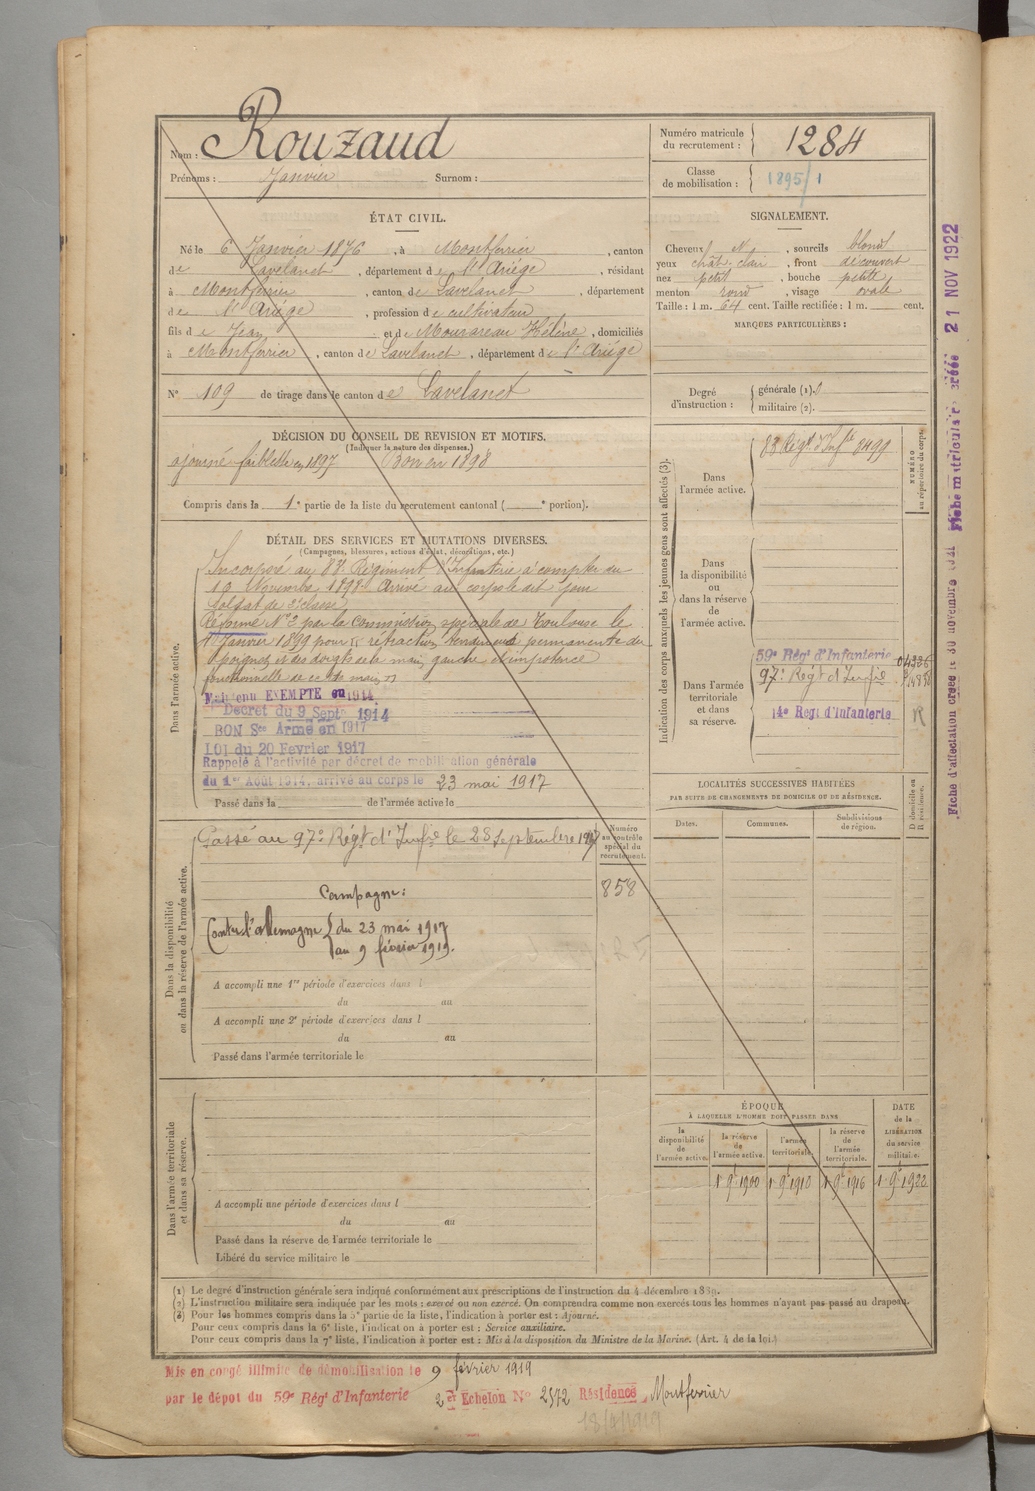 Nom : Rouzaud
Prénoms : Janvier Surnom :
Numéro matricule du recrutement : 1284
Classe de mobilisation : 1895/1
ÉTAT CIVIL.
Né le 6 Janvier 1876, à Montferrier, canton
de Lavelanet, département de l'Ariège, résidant
à Montferrier, canton de Lavelanet, département
de l'Ariège, profession de cultivateur
fils de Jean et de Mourareau Hélène, domiciliés
à Montferrier, canton de Lavelanet, département de l'Ariège
N° 109 de tirage dans le canton de Lavelanet
SIGNALEMENT.
Cheveux N, sourcils blond
yeux chât. clair, front découvert
nez petit, bouche petite
menton rond, visage ovale
Taille : 1 m. 64 cent. Taille rectifiée : 1 m. cent.
MARQUES PARTICULIÈRES :
Degré d'instruction : générale (1).
militaire (2).
DÉCISION DU CONSEIL DE REVISION ET MOTIFS.
(Indiquer la nature des dispenses.)
ajourné faiblesse en 1897 Bon en 1898
Compris dans la 1re partie de la liste du recrutement cantonal ( e portion).
DÉTAIL DES SERVICES ET MUTATIONS DIVERSES.
(Campagnes, blessures, actions d'éclat, décorations, etc.)
Dans l'armée active.
Incorporé au 83e Régiment d'Infanterie à compter du
19 Novembre 1898. Arrivé au corps le dit jour
Soldat de 2e classe
Réformé N° 2 par la Commission spéciale de Toulouse le
Janvier 1899 pour rétraction tendineuse permanente du
poignet et des doigts de la main gauche et impotence
fonctionnelle de cette main
Maintenu EXEMPTE en 1914
Decret du 9 Sept 1914
BON Sce Armé en 1917
LOI du 20 Fevrier 1917
Rappelé à l'activité par décret de mobilisation générale
du 1er Août 1914, arrivé au corps le 23 mai 1917
Passé dans la de l'armée active le
Indication des corps auxquels les jeunes gens sont affectés (3).
NUMÉRO au répertoire du corps.
Dans l'armée active.
83 Régt d'Infie 8499
Dans la disponibilité ou dans la réserve de l'armée active.
Dans l'armée territoriale et dans sa réserve.
59e Régt d'Infanterie
97e Regt d'Infie
14e Regt d'Infanterie R
LOCALITÉS SUCCESSIVES HABITÉES
PAR SUITE DE CHANGEMENTS DE DOMICILE OU DE RÉSIDENCE.
Dates. Communes. Subdivisions de région.
D domicile ou R résidence.
Dans la disponibilité ou dans la réserve de l'armée active.
Passé au 97e Régt d'Infie le 28 Septembre 1917
Numéro au contrôle spécial du recrutement.
858
Campagne :
Contre l'Allemagne du 23 mai 1917
au 9 février 1919.
A accompli une 1re période d'exercices dans l
du au
A accompli une 2e période d'exercices dans l
du au
Passé dans l'armée territoriale le
Dans l'armée territoriale et dans sa réserve.
A accompli une période d'exercices dans l
du au
Passé dans la réserve de l'armée territoriale le
Libéré du service militaire le
ÉPOQUE
À LAQUELLE L'HOMME DOIT PASSER DANS
la disponibilité de l'armée active.
la réserve de l'armée active.
l'armée territoriale.
la réserve de l'armée territoriale.
DATE de la LIBÉRATION du service militaire.
1 9e 1900 1 9e 1910 1 9e 1916 1 9e 1922
(1) Le degré d'instruction générale sera indiqué conformément aux prescriptions de l'instruction du 4 décembre 1889.
(2) L'instruction militaire sera indiquée par les mots : exercé ou non exercé. On comprendra comme non exercés tous les hommes n'ayant pas passé au drapeau.
(3) Pour les hommes compris dans la 5e partie de la liste, l'indication à porter est : Ajourné.
Pour ceux compris dans la 6e liste, l'indication à porter est : Service auxiliaire.
Pour ceux compris dans la 7e liste, l'indication à porter est : Mis à la disposition du Ministre de la Marine. (Art. 4 de la loi.)
Mis en congé illimité de démobilisation le 9 février 1919
par le dépôt du 59e Régt d'Infanterie 2er Echelon N° 2572 Résidence Montferrier
18/4/1919
Fiche matricule créée 21 NOV 1922
Fiche d'affectation créée le 30 novembre